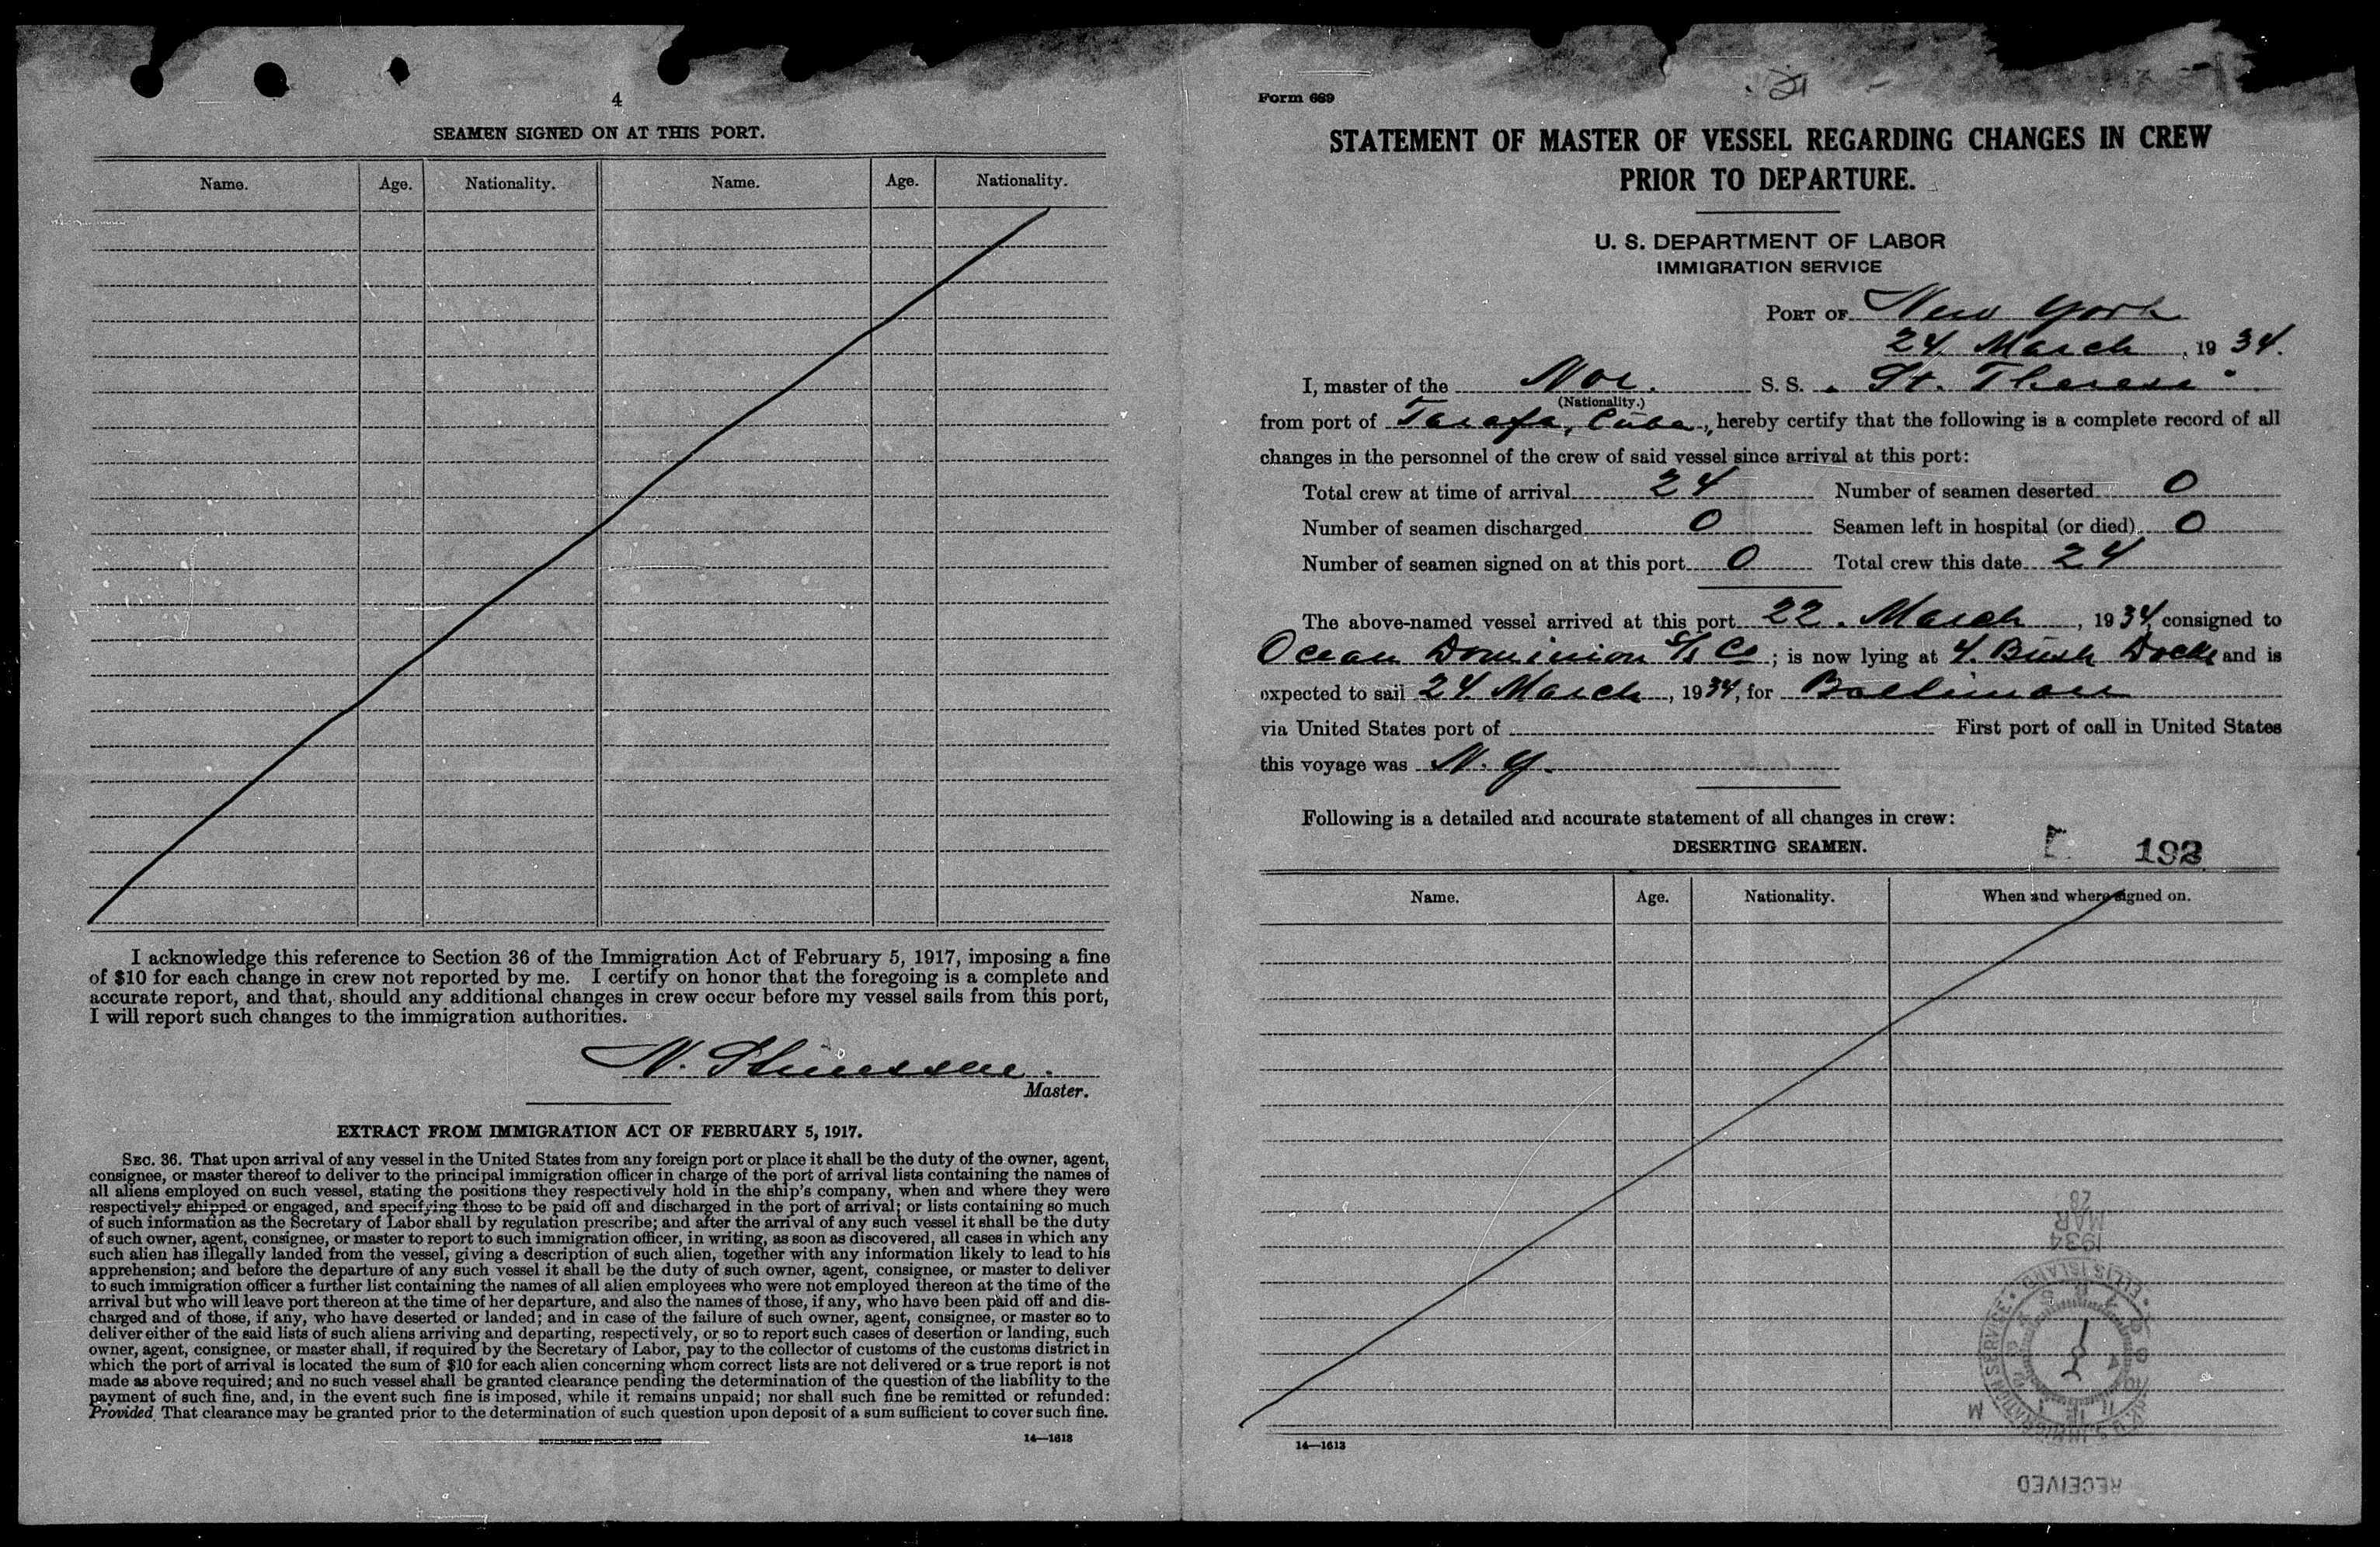 4
SEAMEN SIGNED ON AT THIS PORT.
Name. Age. Nationality. Name. Age. Nationality.
I acknowledge this reference to Section 36 of the Immigration Act of February 5, 1917, imposing a fine
of $10 for each change in crew not reported by me. I certify on honor that the foregoing is a complete and
accurate report, and that, should any additional changes in crew occur before my vessel sails from this port,
I will report such changes to the immigration authorities.
N.
Master.
EXTRACT FROM IMMIGRATION ACT OF FEBRUARY 5, 1917.
SEC. 36. That upon arrival of any vessel in the United States from any foreign port or place it shall be the duty of the owner, agent,
consignee, or master thereof to deliver to the principal immigration officer in charge of the port of arrival lists containing the names of
all aliens employed on such vessel, stating the positions they respectively hold in the ship's company, when and where they were
respectively shipped or engaged, and specifying those to be paid off and discharged in the port of arrival; or lists containing so much
of such information as the Secretary of Labor shall by regulation prescribe; and after the arrival of any such vessel it shall be the duty
of such owner, agent, consignee, or master to report to such immigration officer, in writing, as soon as discovered, all cases in which any
such alien has illegally landed from the vessel, giving a description of such alien, together with any information likely to lead to his
apprehension; and before the departure of any such vessel it shall be the duty of such owner, agent, consignee, or master to deliver
to such immigration officer a further list containing the names of all alien employees who were not employed thereon at the time of the
arrival but who will leave port thereon at the time of her departure, and also the names of those, if any, who have been paid off and dis-
charged and of those, if any, who have deserted or landed; and in case of the failure of such owner, agent, consignee, or master so to
deliver either of the said lists of such aliens arriving and departing, respectively, or so to report such cases of desertion or landing, such
owner, agent, consignee, or master shall, if required by the Secretary of Labor, pay to the collector of customs of the customs district in
which the port of arrival is located the sum of $10 for each alien concerning whom correct lists are not delivered or a true report is not
made as above required; and no such vessel shall be granted clearance pending the determination of the question of the liability to the
payment of such fine, and, in the event such fine is imposed, while it remains unpaid; nor shall such fine be remitted or refunded:
Provided That clearance may be granted prior to the determination of such question upon deposit of a sum sufficient to cover such fine.
GOVERNMENT PRINTING OFFICE 14—1613
Form 689
STATEMENT OF MASTER OF VESSEL REGARDING CHANGES IN CREW
PRIOR TO DEPARTURE.
U. S. DEPARTMENT OF LABOR
IMMIGRATION SERVICE
PORT OF New York
24 March, 1934.
I, master of the Nor. S. S. "St. Therese"
(Nationality.)
from port of Tarafa, Cuba, hereby certify that the following is a complete record of all
changes in the personnel of the crew of said vessel since arrival at this port:
Total crew at time of arrival 24 Number of seamen deserted 0
Number of seamen discharged 0 Seamen left in hospital (or died) 0
Number of seamen signed on at this port 0 Total crew this date 24
The above-named vessel arrived at this port 22. March, 1934, consigned to
Ocean Dominion S/S Co; is now lying at 4. Bush Dock and is
expected to sail 24 March, 1934, for Baltimore
via United States port of First port of call in United States
this voyage was N. Y.
Following is a detailed and accurate statement of all changes in crew:
DESERTING SEAMEN. 193
Name. Age. Nationality. When and where signed on.
1934
MAR
28
ELLIS ISLAND
IMMIGRATION SERVICE
M
RECEIVED
14—1613